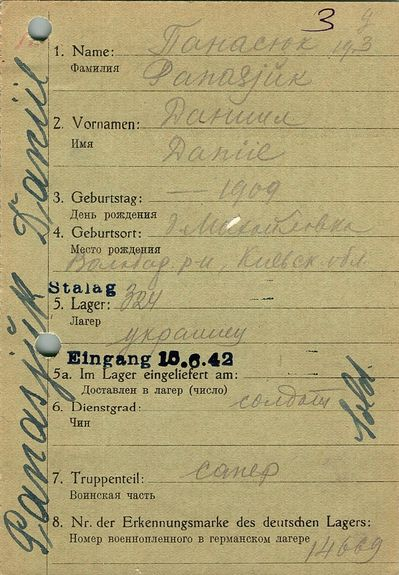 3
1. Name: Панасюк
Фамилия Panasjuk
2. Vornamen: Даниил
Имя Daniil
3. Geburtstag: — 1909
День рождения
4. Geburtsort: д Михайловка
Место рождения
р-н, Киевск. обл.
Stalag
5. Lager: 324
Лагерь
украинец
Eingang 15.6.42
5a. Im Lager eingeliefert am:
Доставлен в лагерь (число)
6. Dienstgrad: солдат
Чин
Sold.
7. Truppenteil: сапер
Воинская часть
8. Nr. der Erkennungsmarke des deutschen Lagers:
Номер военнопленного в германском лагере
14669
Panasjuk Daniil